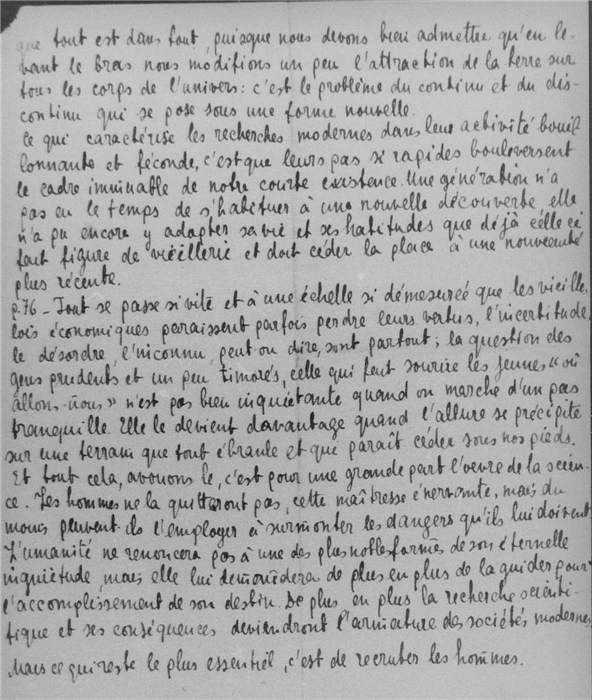 que tout est dans tout, puisque nous devons bien admettre qu'en le-
vant le bras nous modifions un peu l'attraction de la terre sur
tous les corps de l'univers : c'est le problème du continu et du dis-
continu qui se pose sous une forme nouvelle.
Ce qui caractérise les recherches modernes dans leur activité bouil
lonnante et féconde, c'est que leurs pas si rapides bouleversent
le cadre immuable de notre courte existence. Une génération n'a
pas eu le temps de s'habituer à une nouvelle découverte, elle
n'a pu encore y adapter sa vie et ses habitudes que déjà celle ci
fait figure de vieillerie et doit céder la place à une nouveauté
plus récente.
p.76 - Tout se passe si vite et à une échelle si démesurée que les vieille
lois économiques paraissent parfois perdre leurs vertus, l'incertitude,
le désordre, l'inconnu, peut-on dire, sont partout ; la question des
gens prudents et un peu timorés, celle qui fait sourire les jeunes "où
allons-nous" n'est pas bien inquiétante quand on marche d'un pas
tranquille. Elle le devient davantage quand l'allure se précipite
sur une terrain que tout ébranle et qui parait céder sous nos pieds.
Et tout cela, avouons le, c'est pour une grande part l'oevre de la scien-
ce. Les hommes ne la quitteront pas, cette maîtresse énervante, mais du
moins peuvent-ils l'employer à surmonter les dangers qu'ils lui doivent
L'umanité ne renoncera pas à une des plus nobles formes de son éternelle
inquiétude, mais elle lui demandera de plus en plus de la guider pour
l'accomplissement de son destin. De plus en plus la recherche scienti-
fique et ses conséquences deviendront l'armature des sociétés modernes
Mais ce qui reste le plus essentiel, c'est de recruter les hommes.